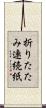 折りたた
み連続紙